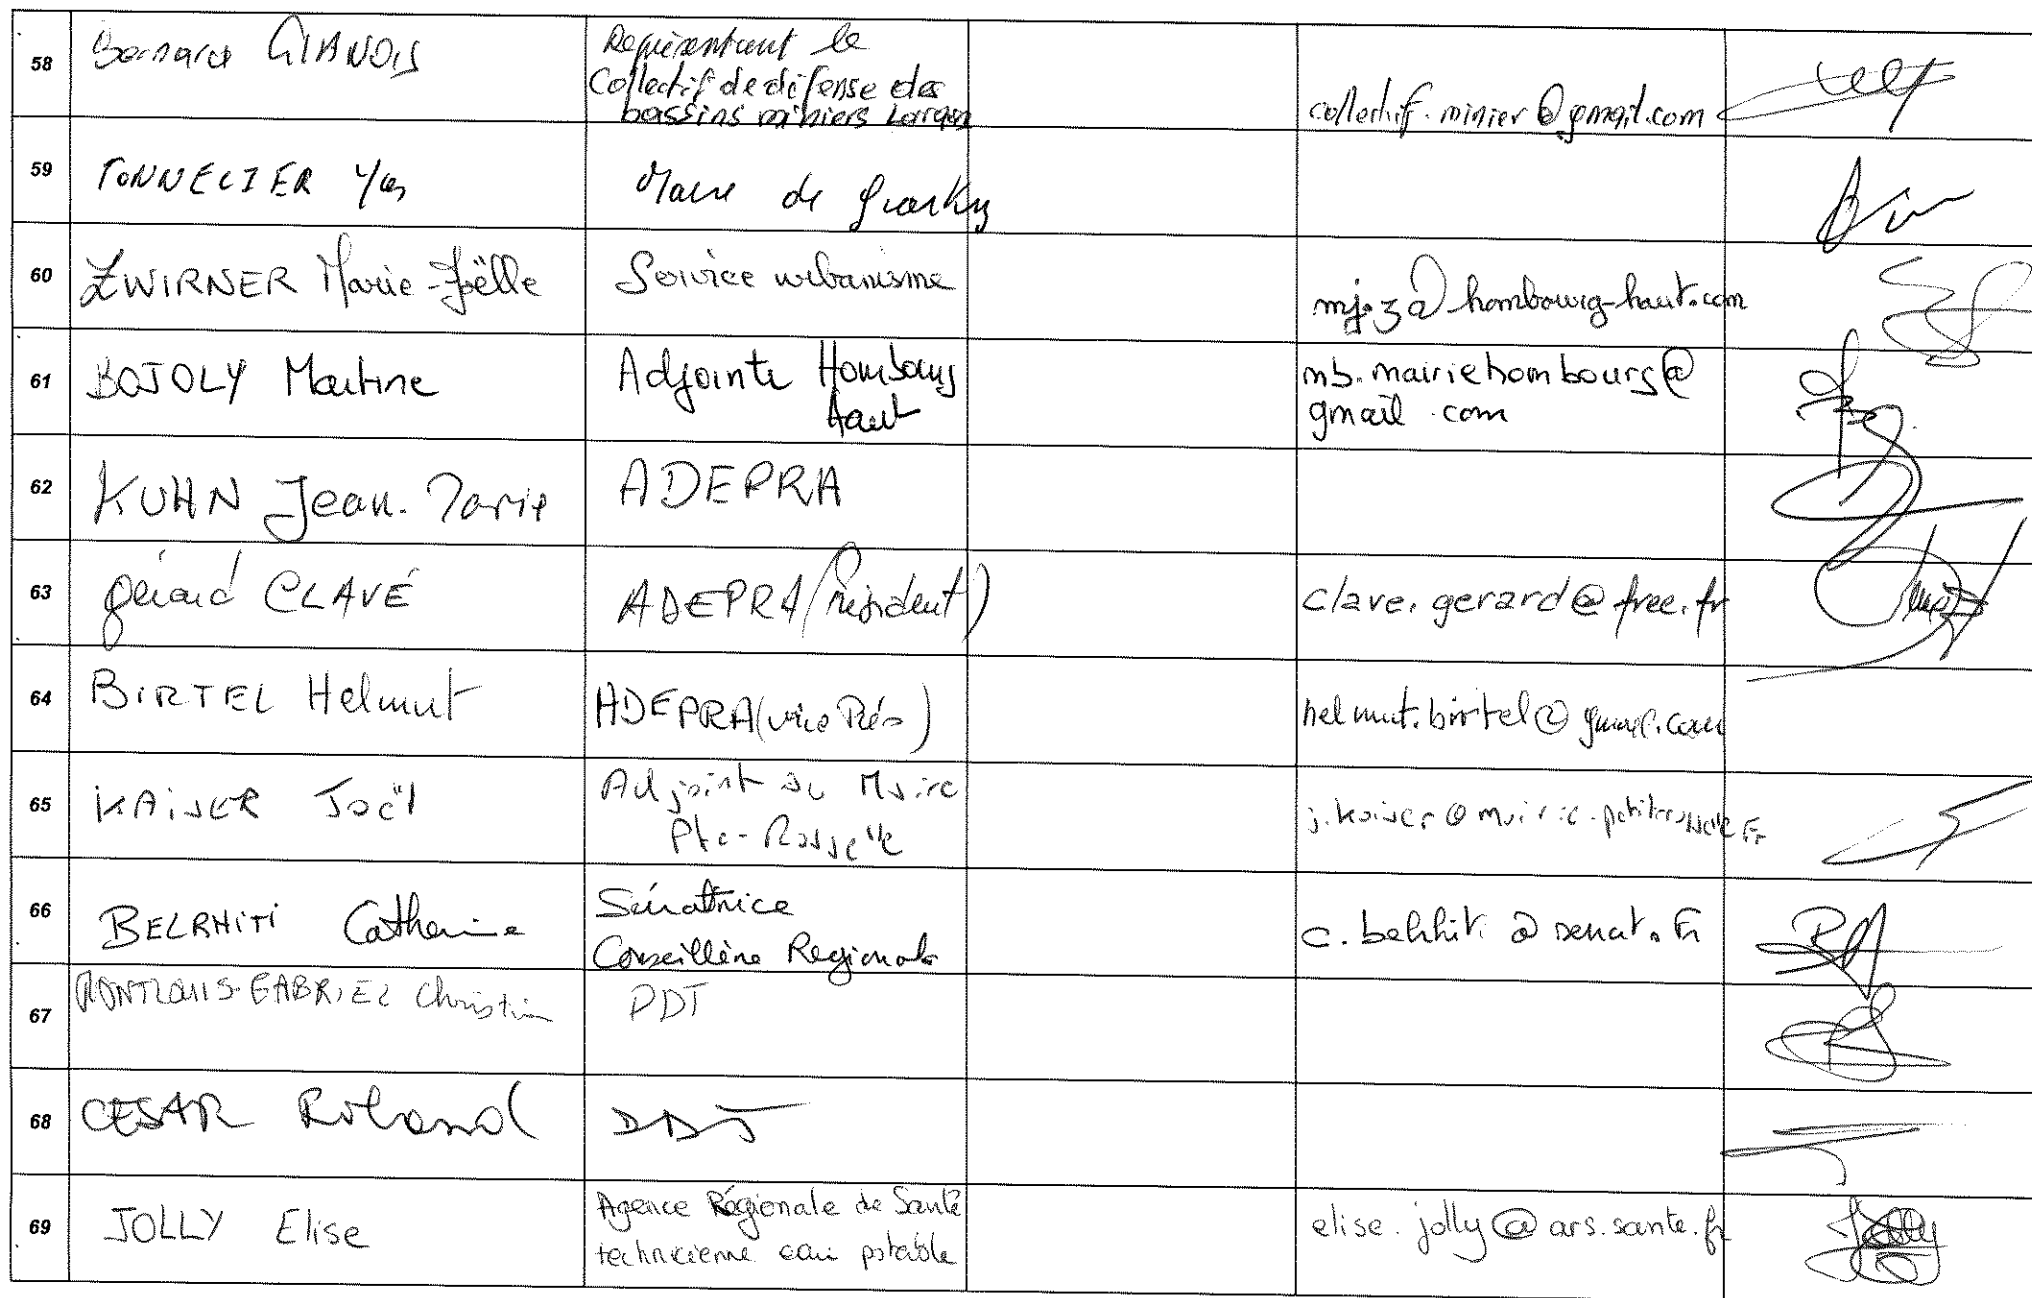 58 Bernard GIANOIS Représentant le
Collectif de défense des
bassins miniers Lorrain collectif.minier@gmail.com
59 TONNELIER Yves Maire de
60 ZWIRNER Marie-Joëlle Service urbanisme mj.z@hombourg-haut.com
61 BOJOLY Martine Adjointe Hombourg
Haut mb.mairiehombourg@
gmail.com
62 KUHN Jean-Marie ADEPRA
63 Gérard CLAVÉ ADEPRA (Président) clave.gerard@free.fr
64 BIRTEL Helmut ADEPRA (vice Prés) helmut.birtel@gmail.com
65 KAISER Joël Adjoint au Maire
Pte-Rosselle j.kaiser@mairie-petiterosselle.fr
66 BELRHITI Catherine Sénatrice
Conseillère Régionale c.belrhiti@senat.fr
67 MONTLOUIS-GABRIEL Christian DDT
68 CESAR Roland DDT
69 JOLLY Elise Agence Régionale de Santé
technicienne eau potable elise.jolly@ars.sante.fr